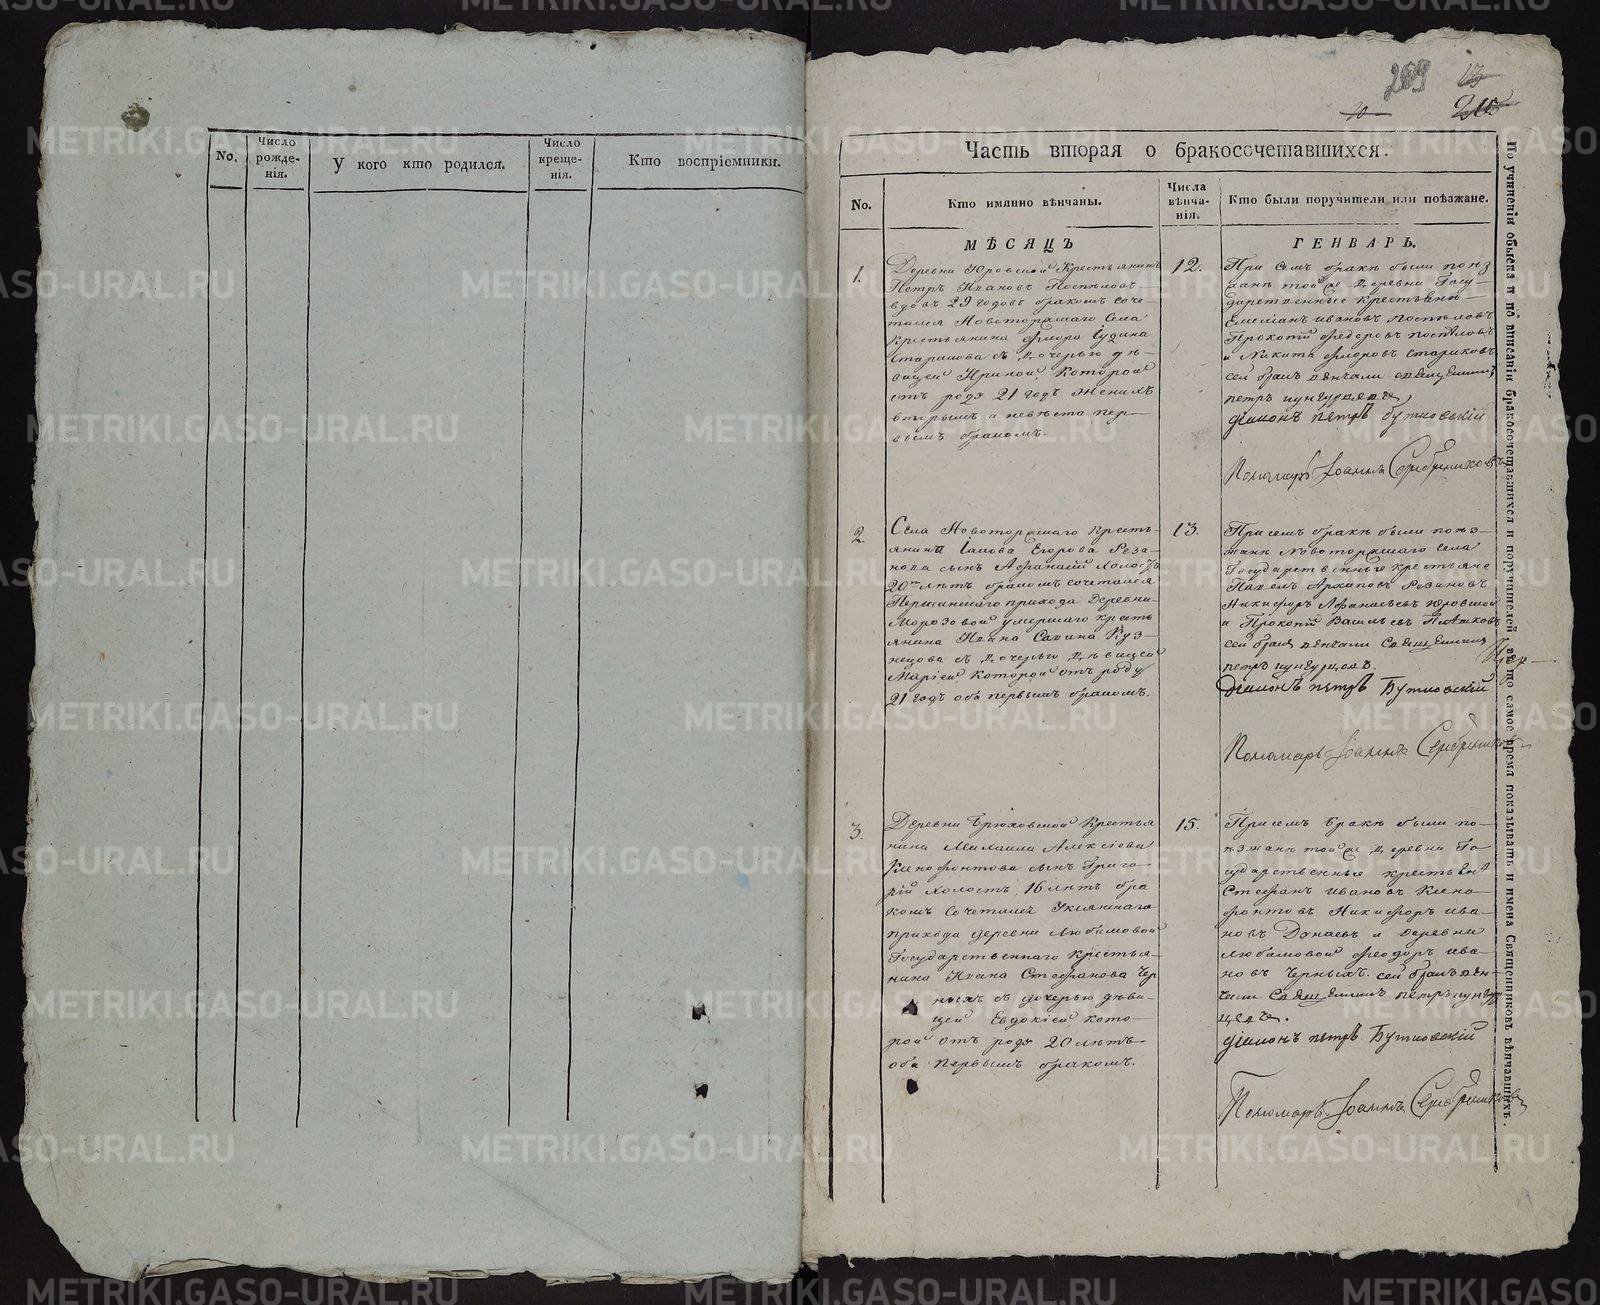 No.
Число рожде-нія.
У кого кто родился.
Число креще-нія.
Кто воспріемники.
209
Часть вторая о бракосочетавшихся.
No.
Кто имянно вѣнчаны.
Числа вѣнча-нія.
Кто были поручители или поѣзжане.
МѢСЯЦЪ
ГЕНВАРЬ.
1.
Деревни Юровской Крестьянинъ
Петръ Ивановъ Поспѣловъ
вдовъ 29 годовъ бракомъ соче-
тался Новоторжскаго Села
крестьянина Флора Іудина
Старикова съ дочерью дѣ-
вицей Ириной Которой
отъ роду 21 годъ женихъ
вторымъ а невѣста пер-
вымъ бракомъ.
12.
При семъ бракѣ были поѣз
жанѣ той же деревни Госу-
дарственные крестьянѣ
Емелианъ Ивановъ Поспѣловъ
Прокопій Федоровъ Поспѣловъ
и Никита Флоровъ Стариковъ
сей бракъ вѣнчали священникъ
петръ кунгурцевъ
діаконъ петръ Бутковскій
Пономарь Іоаннъ Серебрениковъ
2.
Села Новоторжскаго кресть-
янина Іакова Егорова Реза-
нова сынъ Афанасій холостъ
20 лѣтъ бракомъ сочетался
Першинскаго прихода Деревни
Морозовой умершаго кресть
янина Ивана Савина Куз-
нецова съ дочерью дѣвицей
Маріей которой отъ роду
21 годъ оба первымъ бракомъ.
13.
При семъ бракѣ были поѣз-
жанѣ Новоторжскаго Села
Государственные крестьяне
Павелъ Архиповъ Резановъ
Никифоръ Афанасьевъ Юровской
и Прокопій Васильевъ
сей бракъ вѣнчали Священникъ
петръ кунгурцевъ.
діаконъ петръ Бутковскій
Пономарь Іоаннъ Серебрениковъ
3.
Деревни Брюховской Крестья
нина Михаила Алексіева
Ксенофонтова сынъ Григо-
рій холостъ 16 лѣтъ бра
комъ сочетался Уксянскаго
прихода деревни Любимовой
Государственнаго Крестья-
нина Ивана Стефанова Чер
ныхъ съ дочерью дѣви-
цей Евдокіей кото-
рой отъ роду 20 лѣтъ
оба первымъ бракомъ.
15.
При семъ бракѣ были по-
ѣзжанѣ той же деревни Го-
сударственные крестьянѣ
Стефанъ Ивановъ Ксено-
фонтовъ Никифоръ Ива-
новъ Дунаевъ и деревни
Любимовой Феодоръ Ива-
новъ Черныхъ. сей бракъ вѣн-
чали Священникъ петръ кунгур
цевъ.
діаконъ петръ Бутковскій
Пономарь Іоаннъ Серебрениковъ
По учиненіи обыска и по вписаніи бракосочетавшихся и поручителей, въ то самое время показывать и имена Священниковъ вѣнчавшихъ.
METRIKI.GASO-URAL.RU